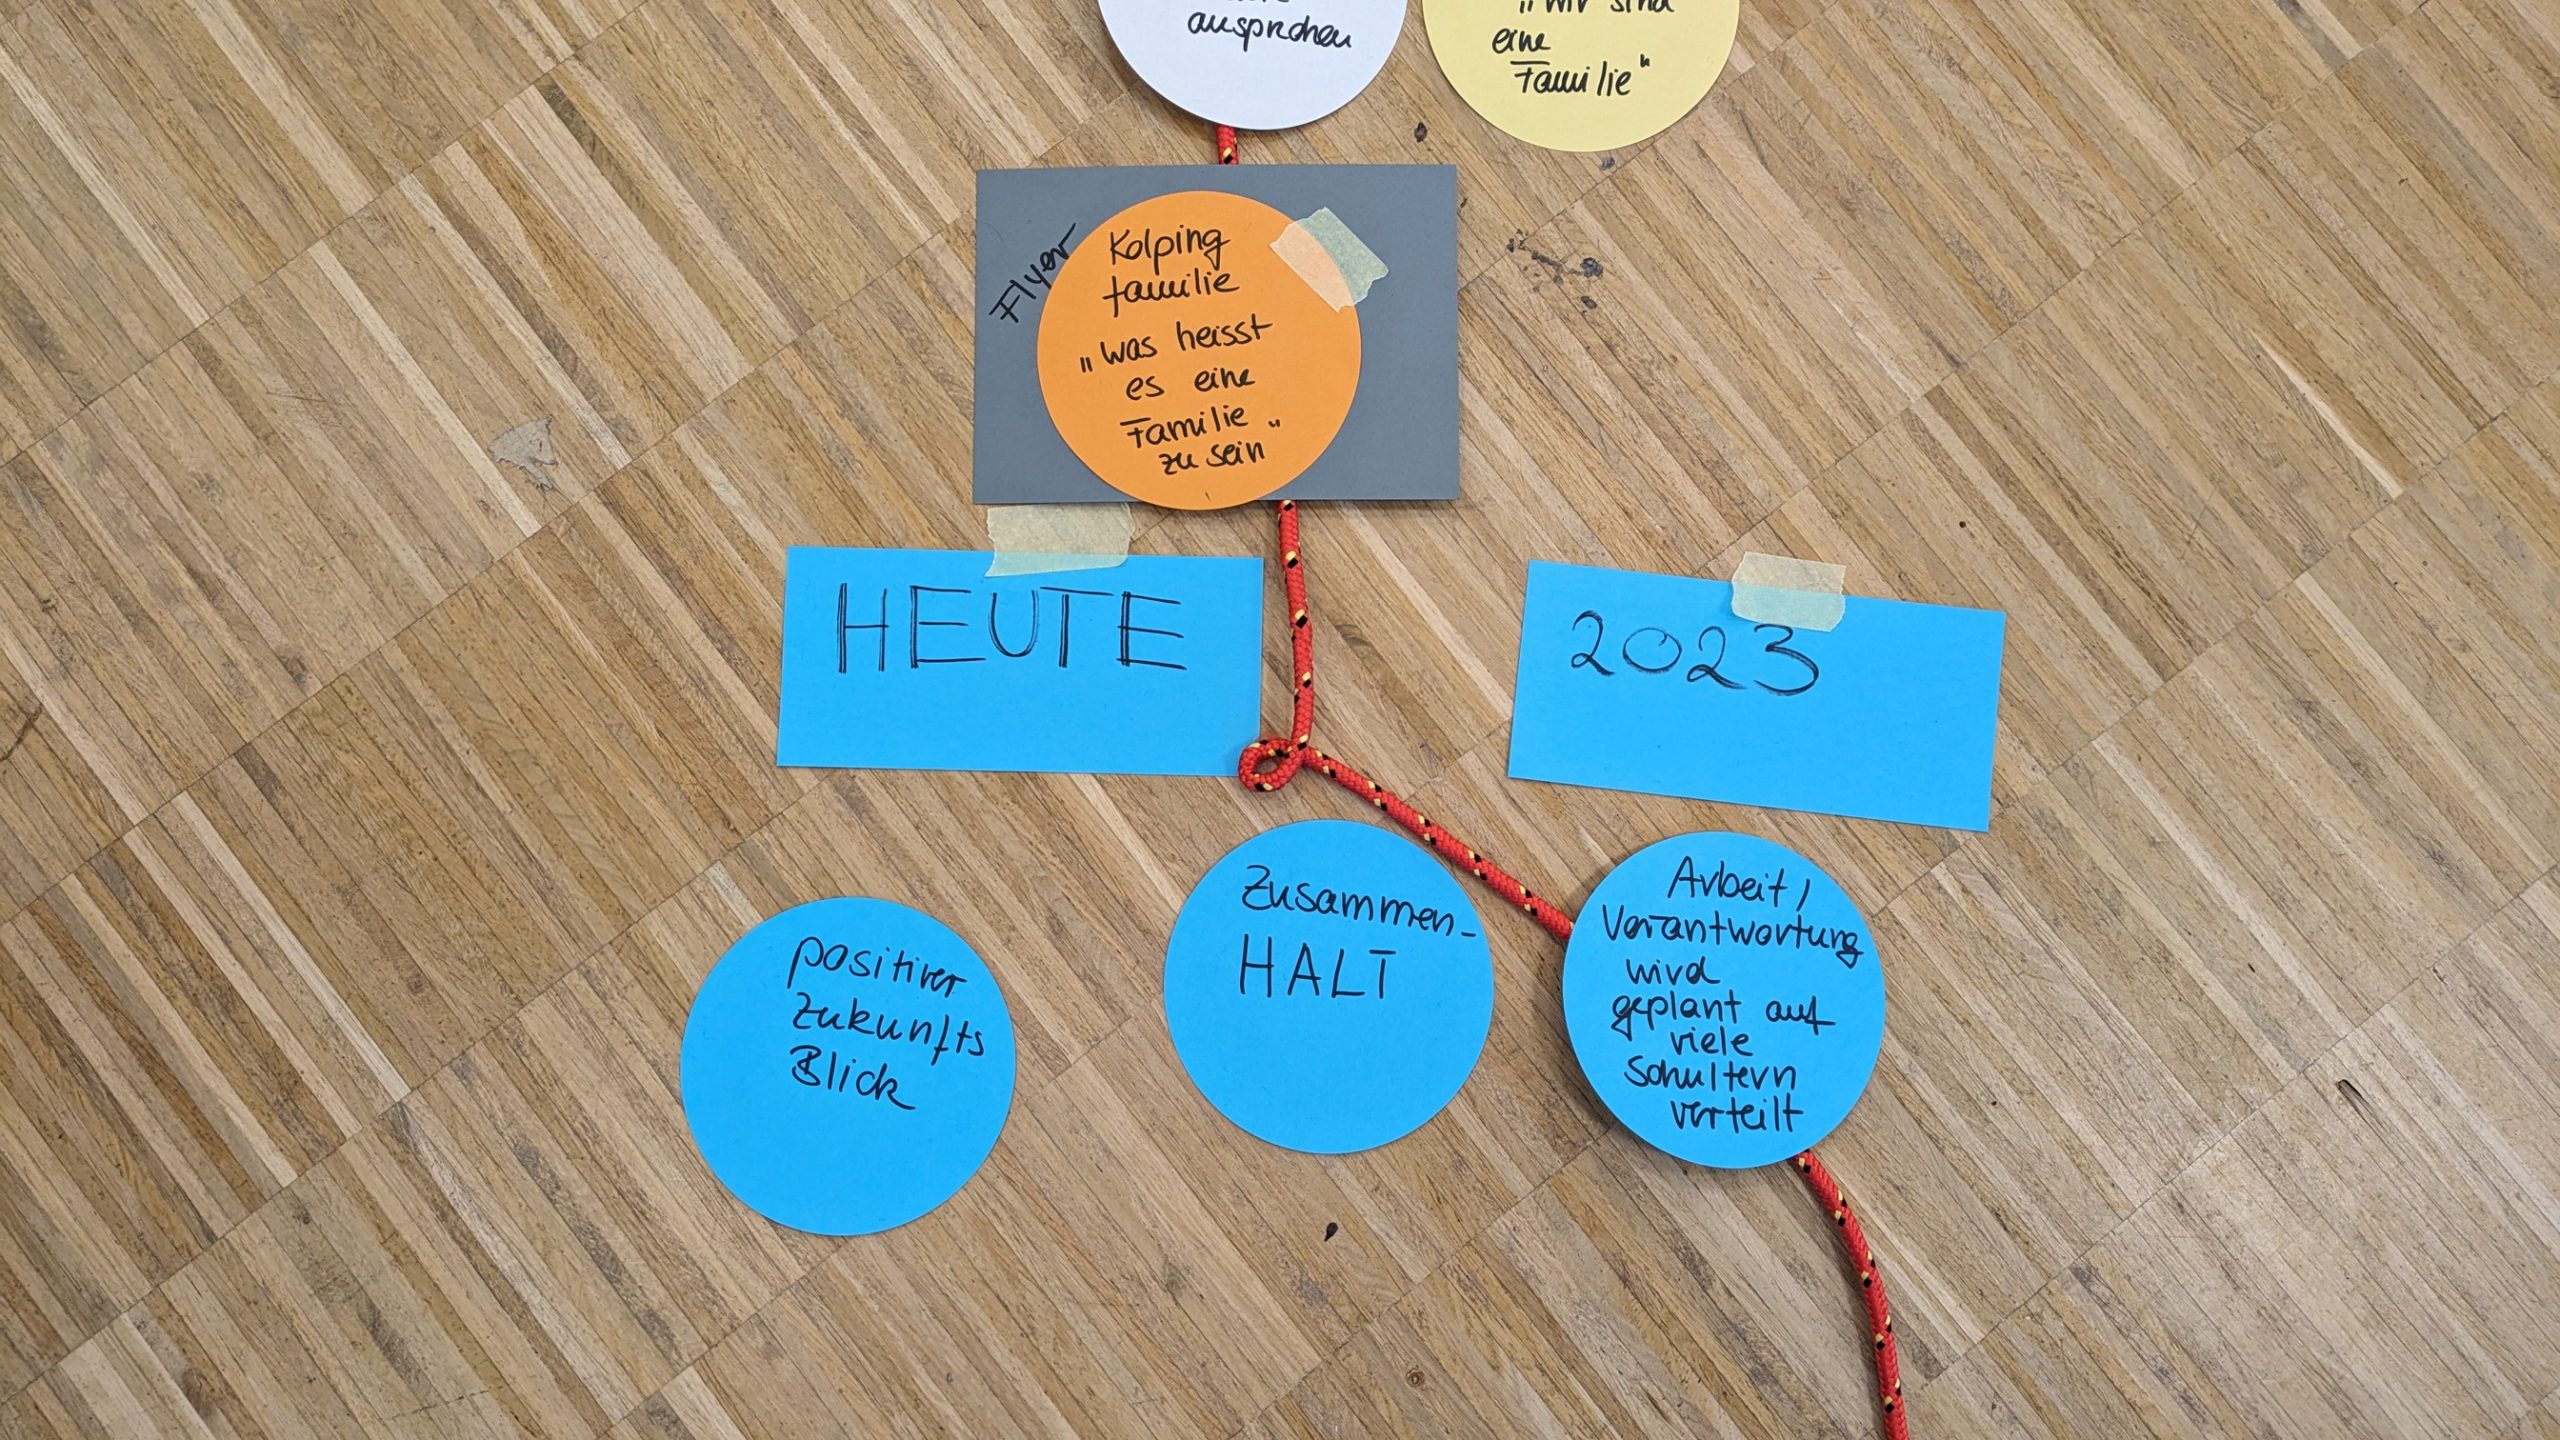 ansprechen
„Wir sind
eine
Familie"
Flyer
Kolping
familie
„was heisst
es eine
Familie
zu sein"
HEUTE
2023
positiver
Zukunfts
Blick
Zusammen-
HALT
Arbeit /
Verantwortung
wird
geplant auf
viele
Schultern
verteilt